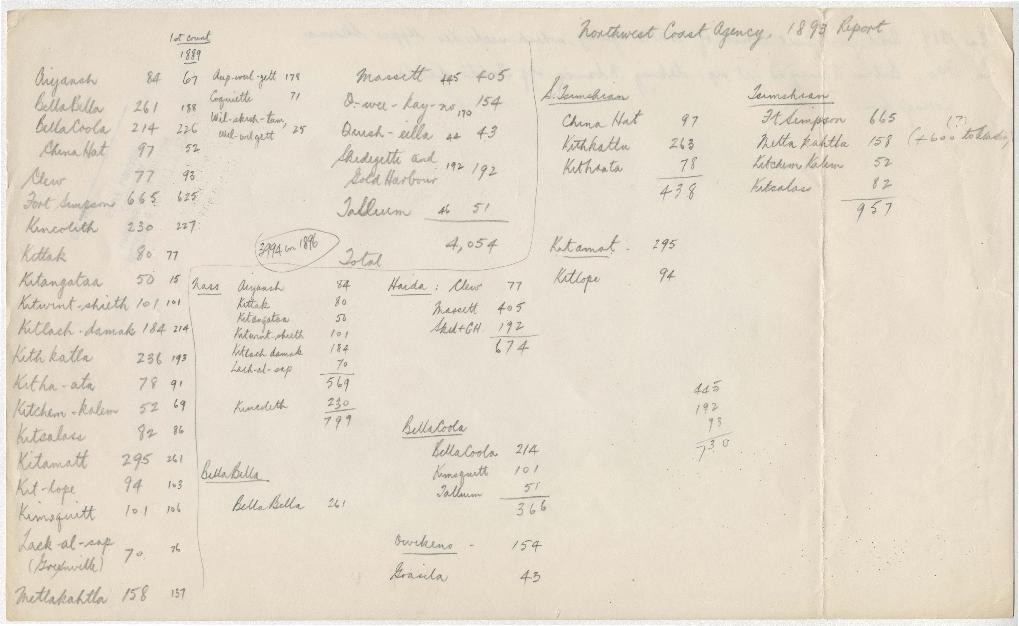 Northwest Coast Agency, 1893 Report
1st count
1889
Aiyansh 84 67
Bella Bella 261 188
Bella Coola 214 226
China Hat 97 52
Clew 77 93
Fort Simpson 665 625
Kincolith 230 227
Kitlak 80 77
Kitangataa 50 15
Kitwint-shieth 101 101
Kitlach-damak 184 214
Kith katla 236 193
Kitha-ata 78 91
Kitchem-kalem 52 69
Kitsalass 82 86
Kitamatt 295 261
Kit-lope 94 103
Kimsquitt 101 106
Lack-al-sap 70 76
(Greenville)
Metlakahtla 158 137
178
Coquiette 71
25
Massett 445 405
O-wee-kay-no 170 154
Quish-eilla 44 43
Skidegette and
Gold Harbour 192 192
Tallium 46 51
Total 4,054
3994 in 1896
S. Tsimshian
China Hat 97
Kithkatla 263
Kithaata 78
438
Tsimshian
Ft Simpson 665
Metlakahtla 158
(?)
Kitchem Kalem 52
Kitsalas 82
957
Kitamat - 295
Kitlope 94
Nass Aiyansh 84
Kitlak 80
Kitangataa 50
Kitwint-shieth 101
Kitlach damak 184
Lach-al-sap 70
569
Kincolith 230
799
Haida: Clew 77
Massett 405
Skid+GH 192
674
445
192
93
730
Bella Bella
Bella Bella 261
Bella Coola
Bella Coola 214
Kimsquitt 101
Tallium 51
366
Owikeno - 154
Goasila 43